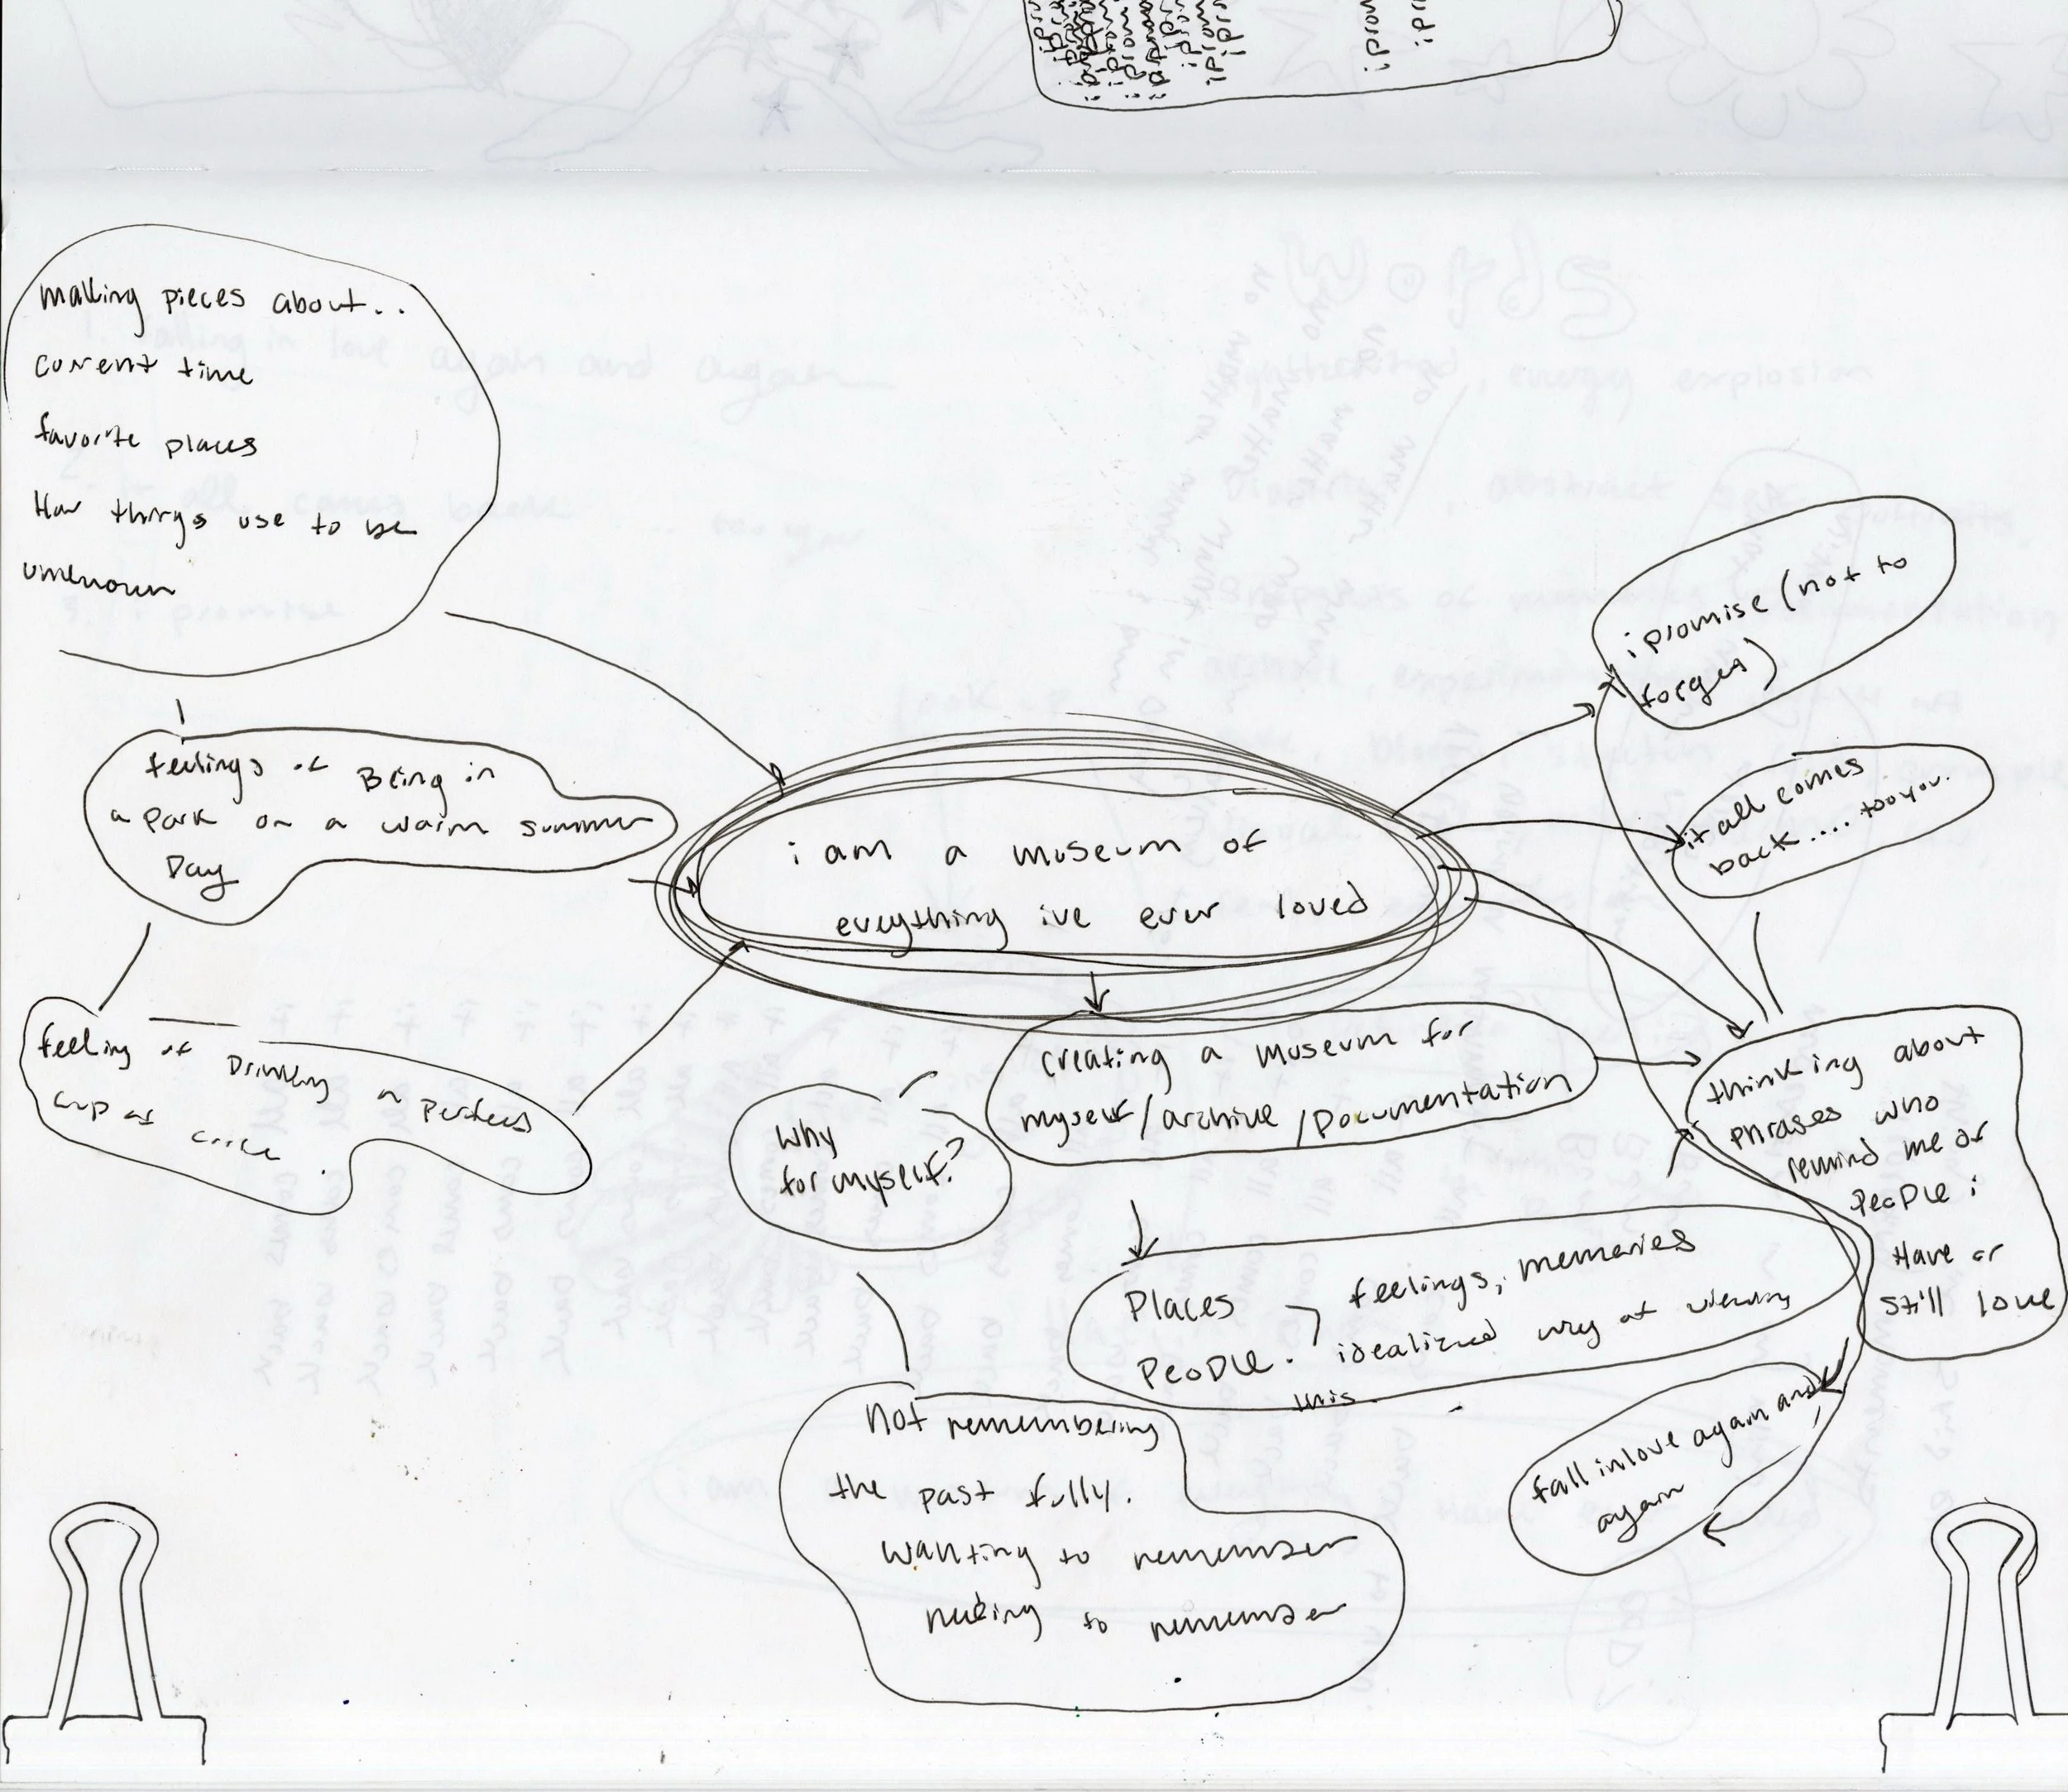 making pieces about..
current time
favorite places
How things use to be
unknown
feelings of Being in
a Park on a warm summer
Day
feeling of Drinking a perfect
cup of
i am a museum of
eveything ive ever loved
i promise (not to
forget)
it all comes
back.... too you.
creating a museum for
myself/archive/Documentation
Why
for myself?
thinking about
phrases who
remind me of
PeoPle i
Have or
still love
Places
PeoPle.
feelings, memories
idealized way of viewing
this
Not remembering
the past fully.
wanting to remember
needing to remember
fall in love again and
again